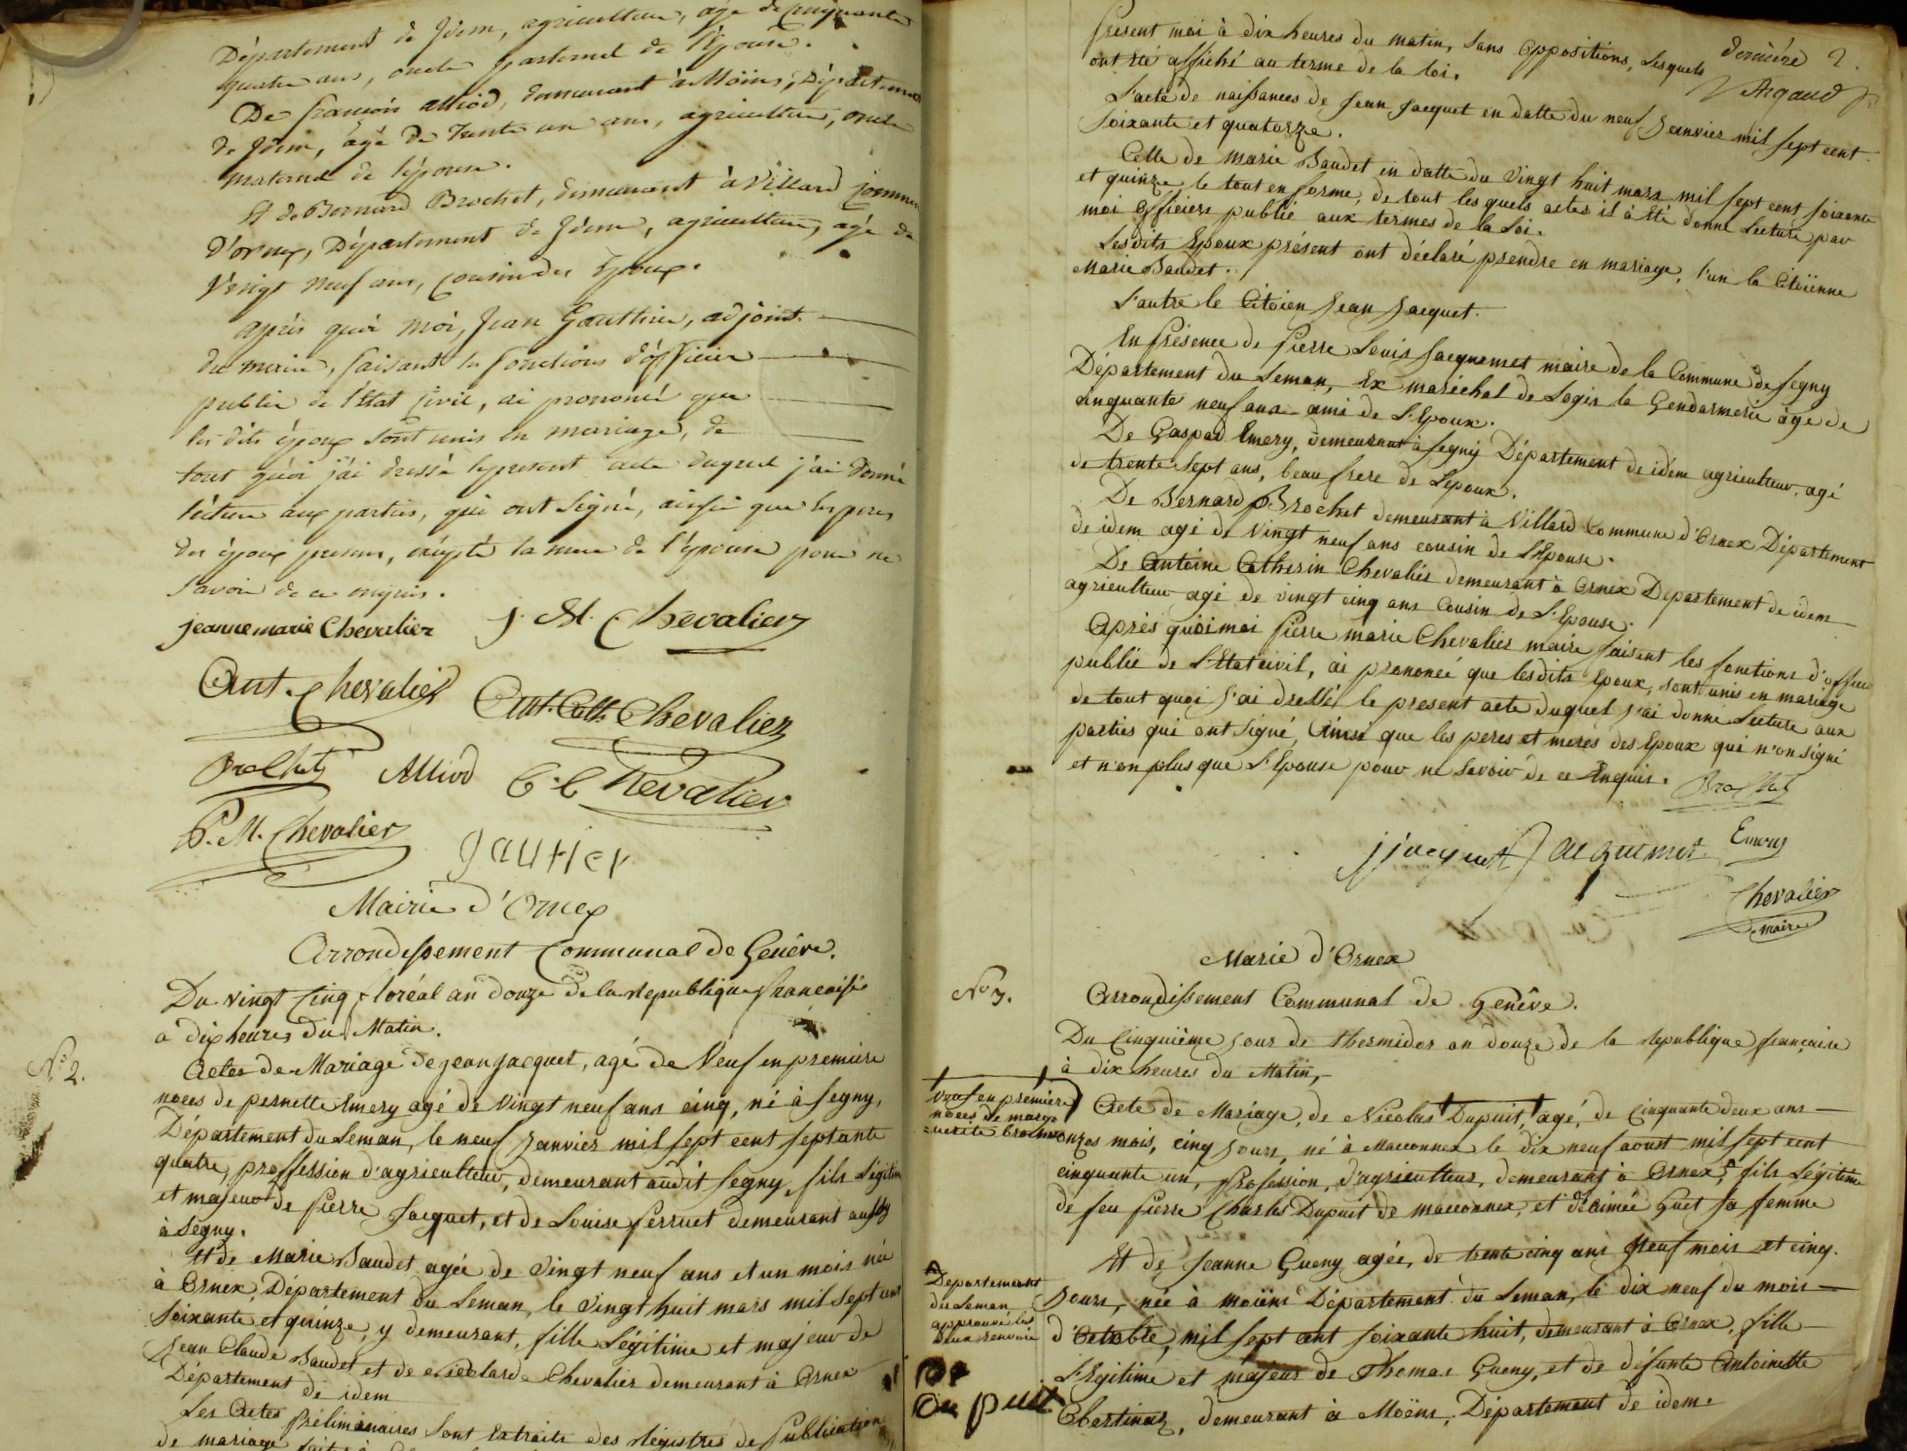 Département de Idem, agriculteur, agé de Cinquante
quatre ans, oncle paternel de l'épouse.
De François Alliod, demeurant à Möins, Département
de Idem, âgé de trente un ans, agriculteur, oncle
maternel de l'épouse.
Et de Bernard Brochet, demeurant à Villard commune
d'ornex, Département de Idem, agriculteur, agé de
Vingt neuf ans, cousin des Epoux.
après quoi moi, Jean Gauthier, adjoint
du maire, faisant les fonctions d'officier
public de l'état civil, ai prononcé que
les dits époux sont unis en mariage, de
tout quoi j'ai dressé le present acte duquel j'ai donné
lecture aux parties, qui ont signé, ainsi que les peres
des époux presens, excepté la mere de l'épouse pour ne
savoir de ce enquis.
jeanne marie Chevalier J. M. Chevalier
Ant. Chevalier Ant. Cath. Chevalier
Brochet Alliod C. Chevalier
P. M. Chevalier
gautier
Mairie d'Ornex
Arrondissement Communal de Genève.
Du vingt Cinq floréal an douze de la Republique francaise
a dix heures du Matin.
N° 2.
Actes de Mariage de jean jacquet, agé de Veuf en premiere
noces de pernette Emery agé de Vingt neuf ans cinq, né à Segny,
Département du Leman, le neuf Janvier mil sept cent septante
quatre, proffession d'agriculteur, demeurant audit Segny, fils Légitime
et majeur de pierre Jacquet, et de Louise perruet demeurant aussy
à Segny.
Et de Marie Baudet agée de Vingt neuf ans et un mois née
à Ornex, Département du Leman, le Vingt huit mars mil sept cent
soixante et quinze, y demeurant, fille Légitime et majeur de
Jean Claude Baudet et de Chevalier demeurant à Ornex
Département de idem
Les Actes préliminaires sont Extraits des Régistres de Publication
de mariage faite à
present moi à dix heures du matin, sans oppositions, lesquels
ont été affiché au terme de la loi.
derniére
Argaud
L'acte de naissances de Jean Jacquet en datte du neuf Janvier mil sept cent
soixante et quatorze.
Celle de marie Baudet en datte du Vingt huit mars mil sept cent soixante
et quinze le tout en forme, de tout les quels actes il à été donné Lecture par
moi officiers publié aux termes de la Loi.
Lesdits Epoux présent ont déclaré prendre en mariage, l'un la Citoïenne
Marie Baudet.
L'autre le Citoien Jean Jacquet.
En présence de pierre Louis Jacquemet maire de la Commune de Segny
Département du Leman, Ex maréchal de Logis la Gendarmerie âge de
cinquante neuf ans ami de L'Epoux.
De Gaspad Emery, demeurant à Segny Département de idem agriculteur, agé
de trente Sept ans, beau frere de Lepoux.
De Bernard Brochet demeurant à Villard Commune d'Ornex Département
de idem agé de Vingt neuf ans cousin de L'Epouse.
De Antoine Catherin Chevalier demeurant à Ornex Département de idem
agriculteur agé de vingt cinq ans Cousin de L'Epouse.
Après quoi moi pierre marie Chevalier maire faisant les fonctions d'officier
publié de L'Etat civil, ai prononcé que lesdits Epoux, sont unis en mariage
de tout quoi J'ai dressé le present acte duquel J'ai donné Lecture aux
parties qui ont signé, Ainsi que les peres et meres des Epoux qui n'on signé
et non plus que L'Epouse pour ne Savoir de ce Enquis.
Brochet
j jacquet Jacquemet Emery
Chevalier
maire
Marie d'Ornex
N° 3.
Arrondissement Communal de Genêve.
Du Cinquiême Jour de thermidor an douze de la Republique française
à dix heures du Matin,
Veuf en premiere
noces de margue
ritte brochet
Acte de Mariage, de Nicolas Dupuit, agé, de Cinquante deux ans
onzes mois, cinq Jours, né à Macconnex le dix neuf aoust mil sept cent
cinquante un, Profession, d'agriculteur, demeurant à Ornex, fils Légitime
de feu pierre Charles Dupuit de macconnex, et d'aimée Guet sa femme
Et de Jeanne Gueny agée, de trente cinq ans Neuf mois et cinq
Département
du Leman
approuvé les
deux renvois
Jours, née à moëns Département du Leman, le dix neuf du mois
d'Octobre, mil Sept cent soixante huit, demeurant à Ornex, fille
Légitime et majeur de Thomas Gueny, et de défunte Antoinette
Du puit
Chertinaz, demeurant à Moëns, Département de idem.